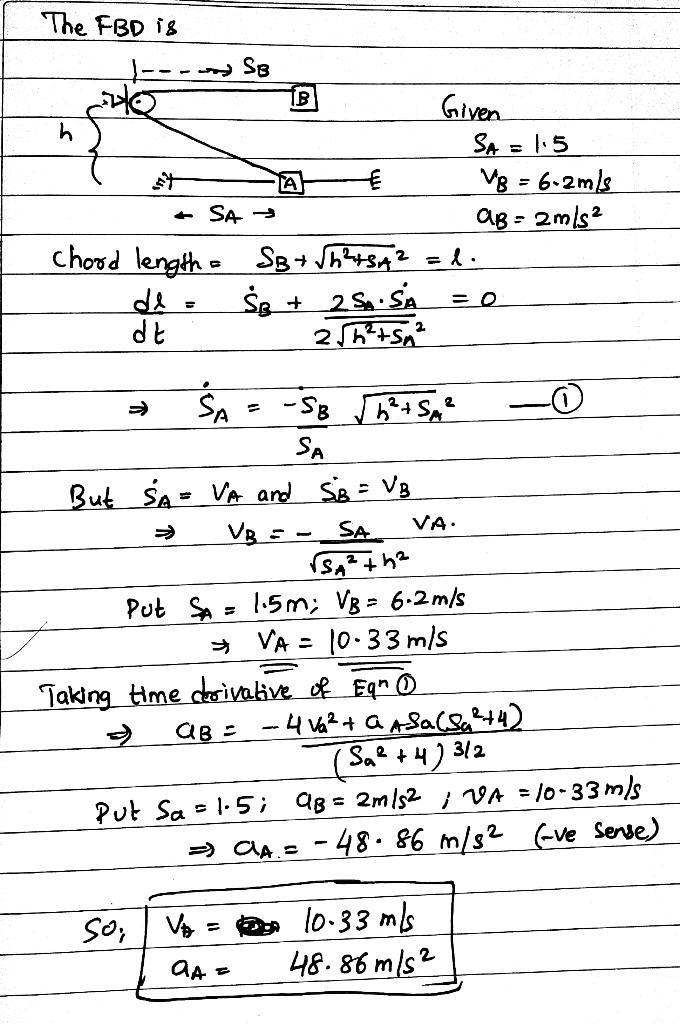 The FBD is
SB
B
h
A
SA
Given
SA = 1.5
VB = 6.2m/s
aB = 2m/s²
Chord length = SB + √h²+SA² = l.
dl/dt = ṠB + 2SA·ṠA / 2√h²+SA² = 0
⇒ ṠA = -ṠB/SA √h²+SA² —①
But ṠA = VA and ṠB = VB
⇒ VB = - SA/√SA²+h² VA.
Put SA = 1.5m; VB = 6.2m/s
⇒ VA = 10.33 m/s
Taking time derivative of Eqn ①
⇒ aB = -4Va² + aASa(Sa²+4) / (Sa²+4)3/2
Put Sa = 1.5; aB = 2m/s² ; VA = 10.33 m/s
⇒ aA = -48.86 m/s² (-ve Sense)
So, VB = 10.33 m/s
aA = 48.86 m/s²